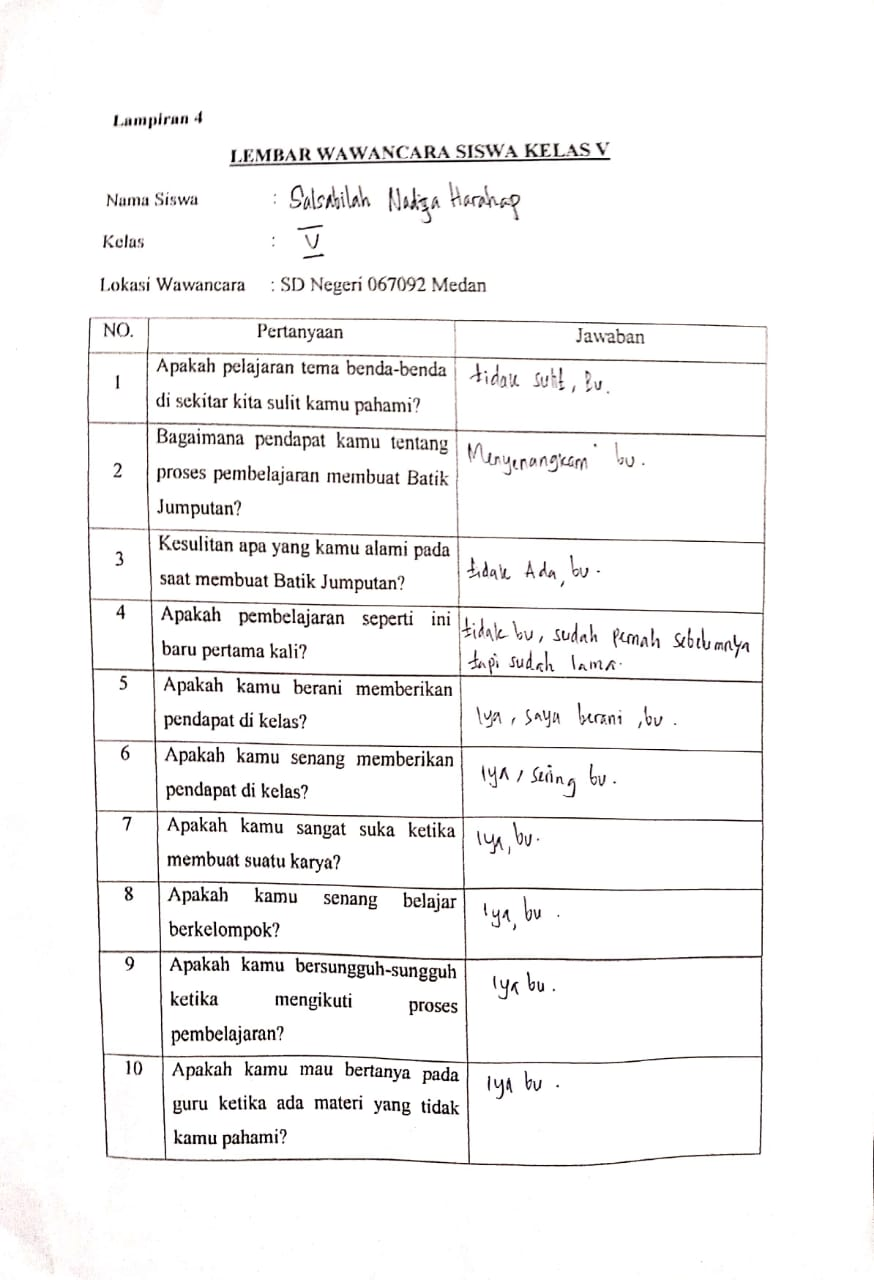 Lampiran 4
LEMBAR WAWANCARA SISWA KELAS V
Nama Siswa : Salsabilah Nadiza Harahap
Kelas : V
Lokasi Wawancara : SD Negeri 067092 Medan
NO. Pertanyaan Jawaban
1 Apakah pelajaran tema benda-benda
di sekitar kita sulit kamu pahami?
tidak sulit, Bu.
2 Bagaimana pendapat kamu tentang
proses pembelajaran membuat Batik
Jumputan?
Menyenangkam bu.
3 Kesulitan apa yang kamu alami pada
saat membuat Batik Jumputan?
tidak Ada, bu.
4 Apakah pembelajaran seperti ini
baru pertama kali?
tidak bu, sudah pernah sebelumnya
tapi sudah lama.
5 Apakah kamu berani memberikan
pendapat di kelas?
Iya, saya berani, bu.
6 Apakah kamu senang memberikan
pendapat di kelas?
Iya, sering bu.
7 Apakah kamu sangat suka ketika
membuat suatu karya?
Iya, bu.
8 Apakah kamu senang belajar
berkelompok?
Iya, bu.
9 Apakah kamu bersungguh-sungguh
ketika mengikuti proses
pembelajaran?
Iya bu.
10 Apakah kamu mau bertanya pada
guru ketika ada materi yang tidak
kamu pahami?
Iya bu.